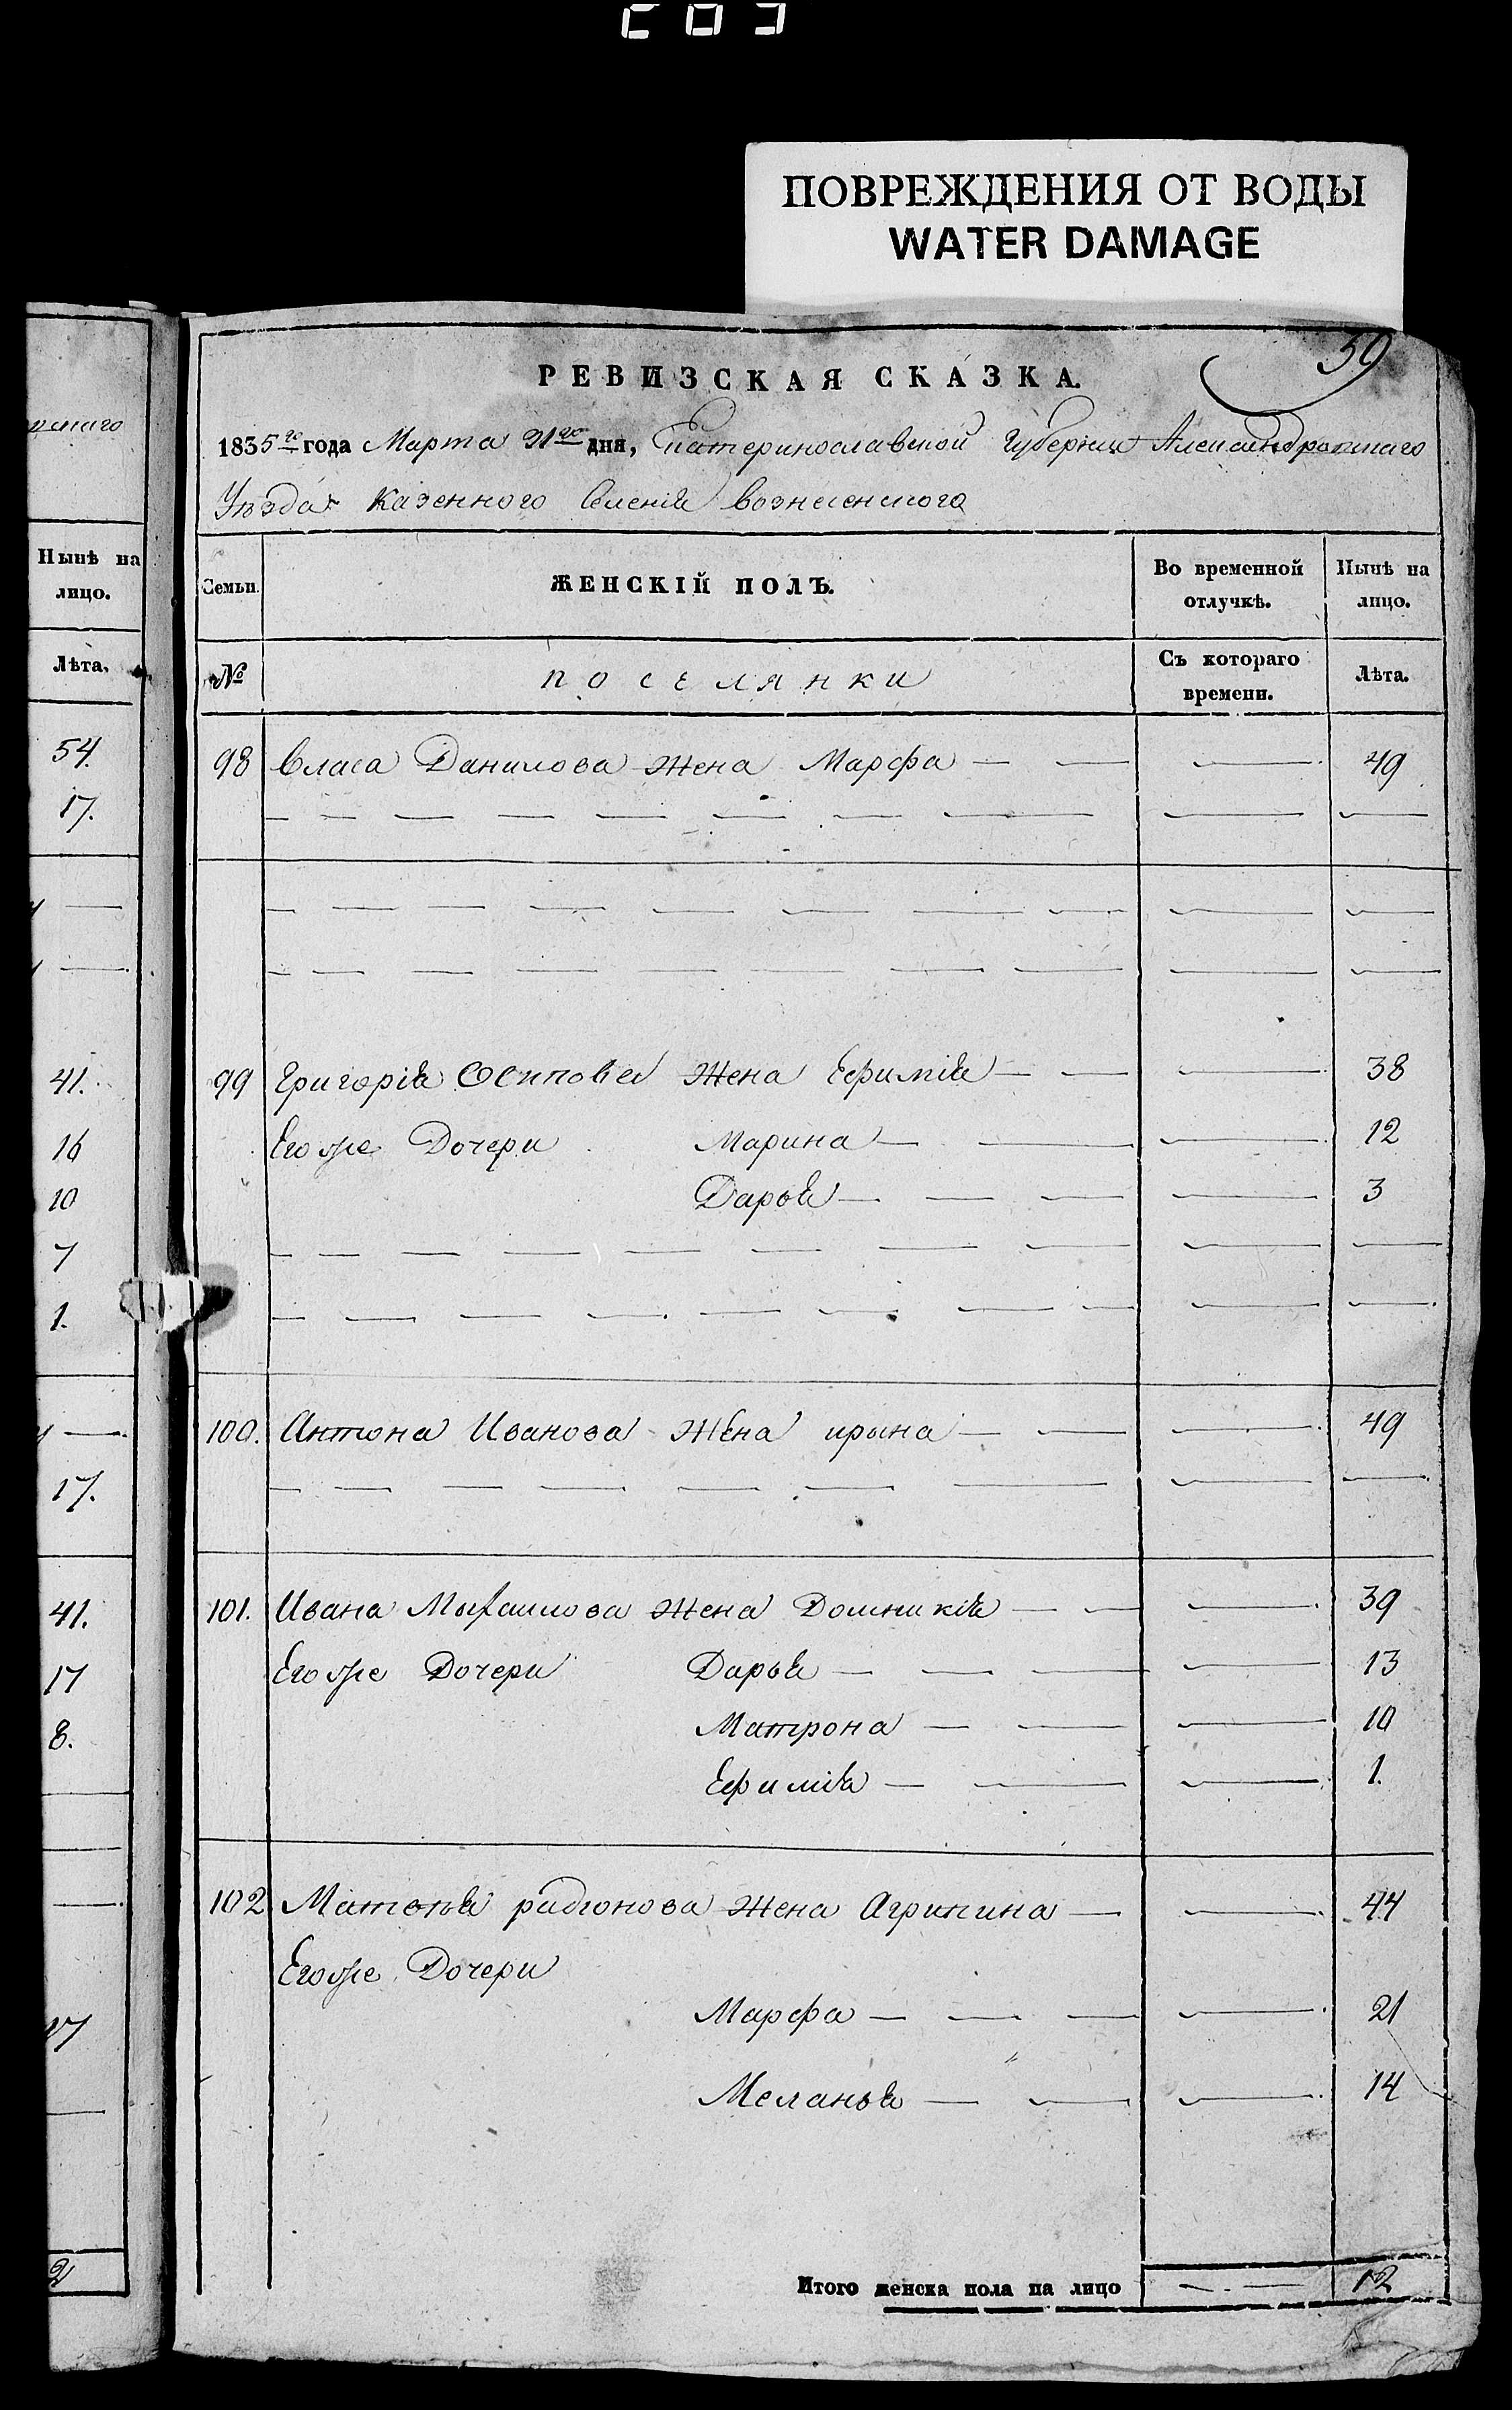 ПОВРЕЖДЕНИЯ ОТ ВОДЫ
WATER DAMAGE
59
РЕВИЗСКАЯ СКАЗКА.
1835го года Марта 31го дня, Екатеринославской Губернии Александровскаго
Уѣзда казенного Селенія вознесенского
Нынѣ на лицо.
Лѣта.
54.
17.
41.
16
10
7
1.
17.
41.
17
8.
Семьи. ЖЕНСКІЙ ПОЛЪ. Во временной отлучкѣ. Нынѣ на лицо.
№ поселянки Съ котораго времени. Лѣта.
98 Власа Данилова жена Марфа — — — 49
99 Григорія Осипова жена Ефимія — — — 38
Егоже Дочери Марина — — — 12
Дарья — — — — 3
100. Антона Иванова жена ирына — — — 49
101. Ивана Михаилова жена Домникія — — — 39
Егоже Дочери Дарья — — — — 13
Матрона — — — 10
Ефимія — — — 1.
102 Матвѣя радионова жена Агрипина — — 44
Егоже Дочери
Марфа — — — — 21
Меланья — — — 14
Итого женска пола на лицо — . — 12